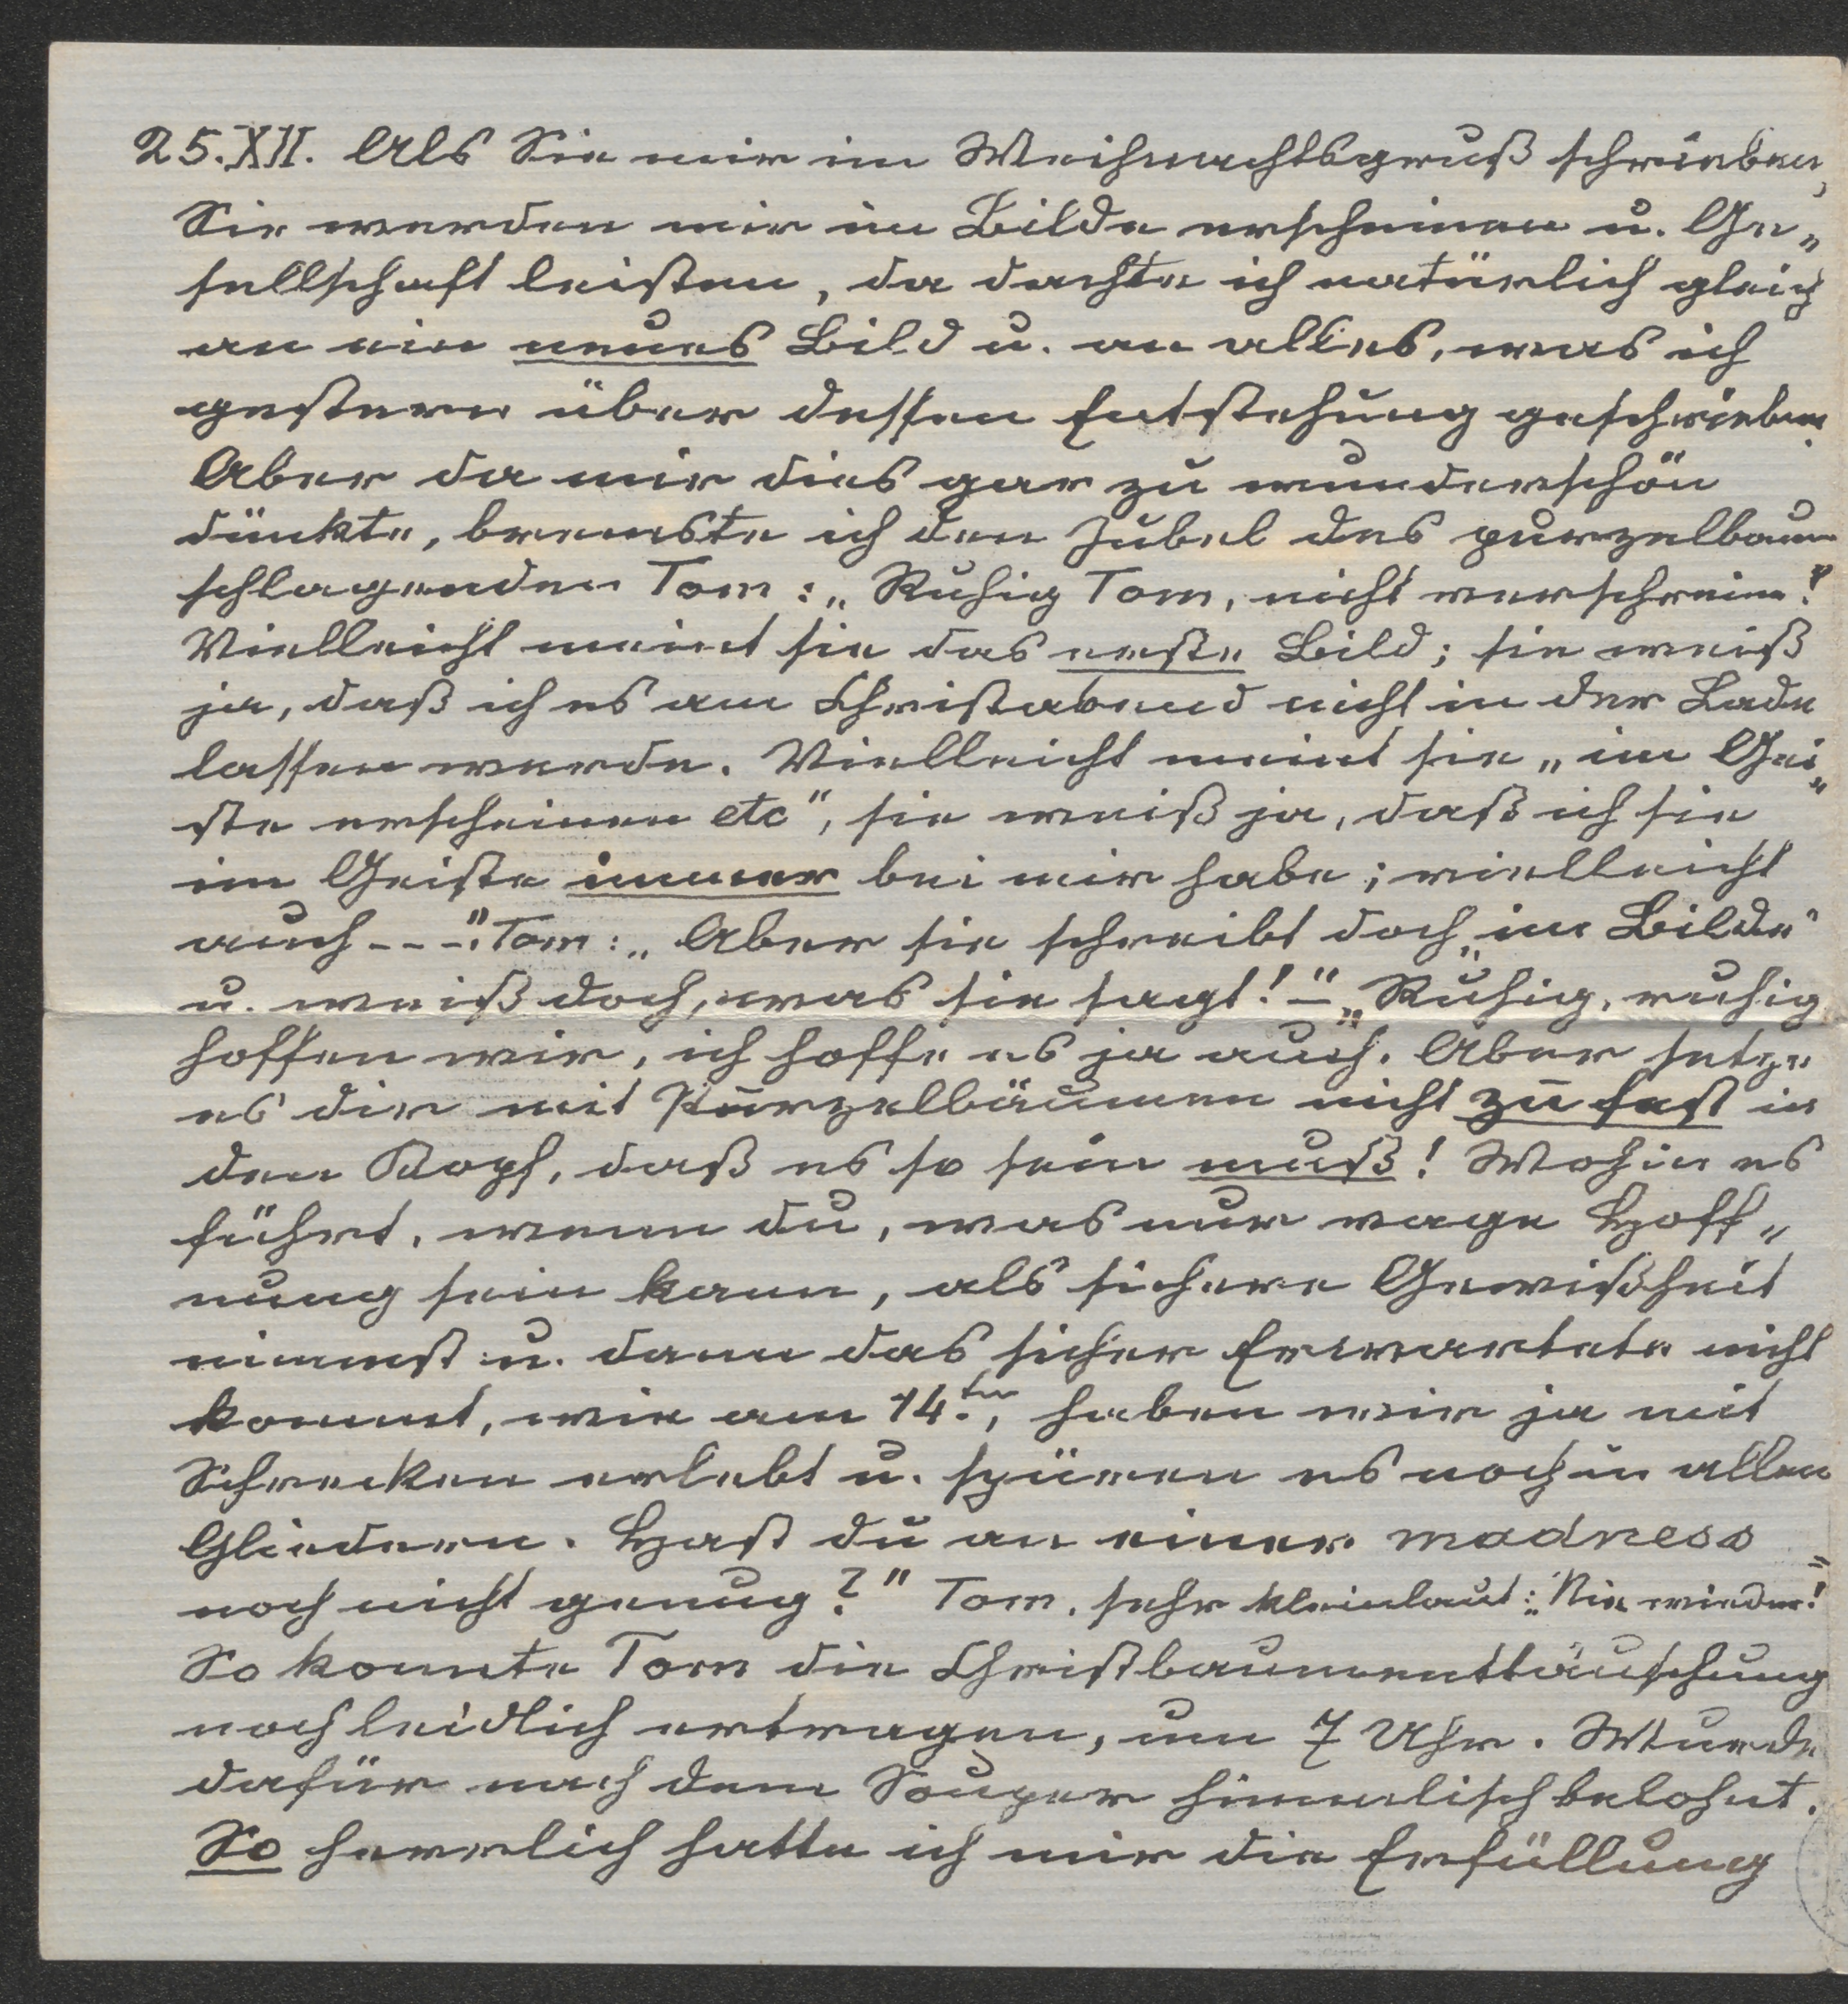 25.XII. Als Sie mir im Weihnachtsgruß schrieben,
Sie werden mir im Bilde erscheinen u. Ge„
sellschaft leisten, da dachte ich natürlich gleich
an ein neues Bild u. an alles, was ich
gestern über dessen Entstehung geschrieben.
Aber da mir dies gar zu wunderschön
dünkte, bremste ich den Jubel des purzelbaum
schlagenden Tom: „Ruhig Tom, nicht verschreien!
Vielleicht meint sie das erste Bild; sie weiß
ja, daß ich es am Christabend nicht in der Lade
lassen werde. Vielleicht meint sie „im Gei„
ste erscheinen etc“, sie weiß ja, daß ich sie
im Geiste immer bei mir habe; vielleicht
auch - - -“. Tom: „Aber sie schreibt doch „im Bilde“
u. weiß doch, was sie sagt!“ – „Ruhig, ruhig,
hoffen wir, ich hoffe es ja auch. Aber setze
es dir mit Purzelbäumen nicht zu fest in
den Kopf, daß es so sein muß! Wohin es
führt, wenn du, was nur vage Hoff„
nung sein kann, als sichere Gewißheit
nimmst u. dann das sicher Erwartete nicht
kommt, wie am 14.ten, haben wir ja mit
Schrecken erlebt u. spüren es noch in allen
Gliedern. Hast du an einer madness
noch nicht genug?“ Tom, sehr kleinlaut: „Nie wieder!“
So konnte Tom die Christbaumenttäuschung
noch leidlich ertragen, um 7 Uhr. Wurde
dafür nach dem Souper himmlisch belohnt.
So herrlich hatte ich mir die Erfüllung